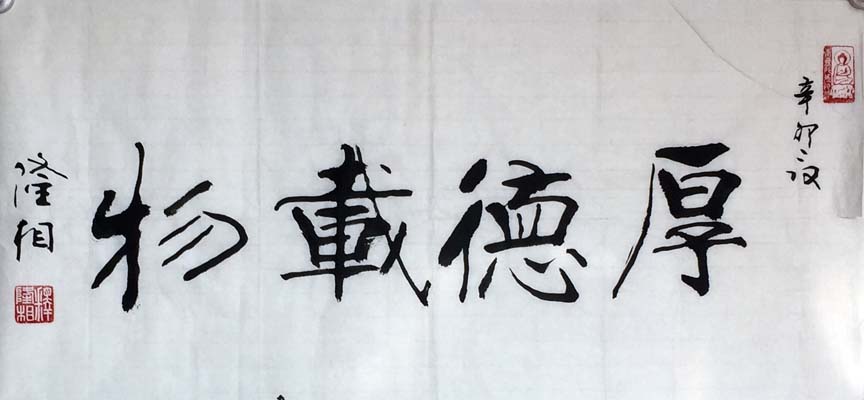 辛卯之秋
厚德載物
隆相